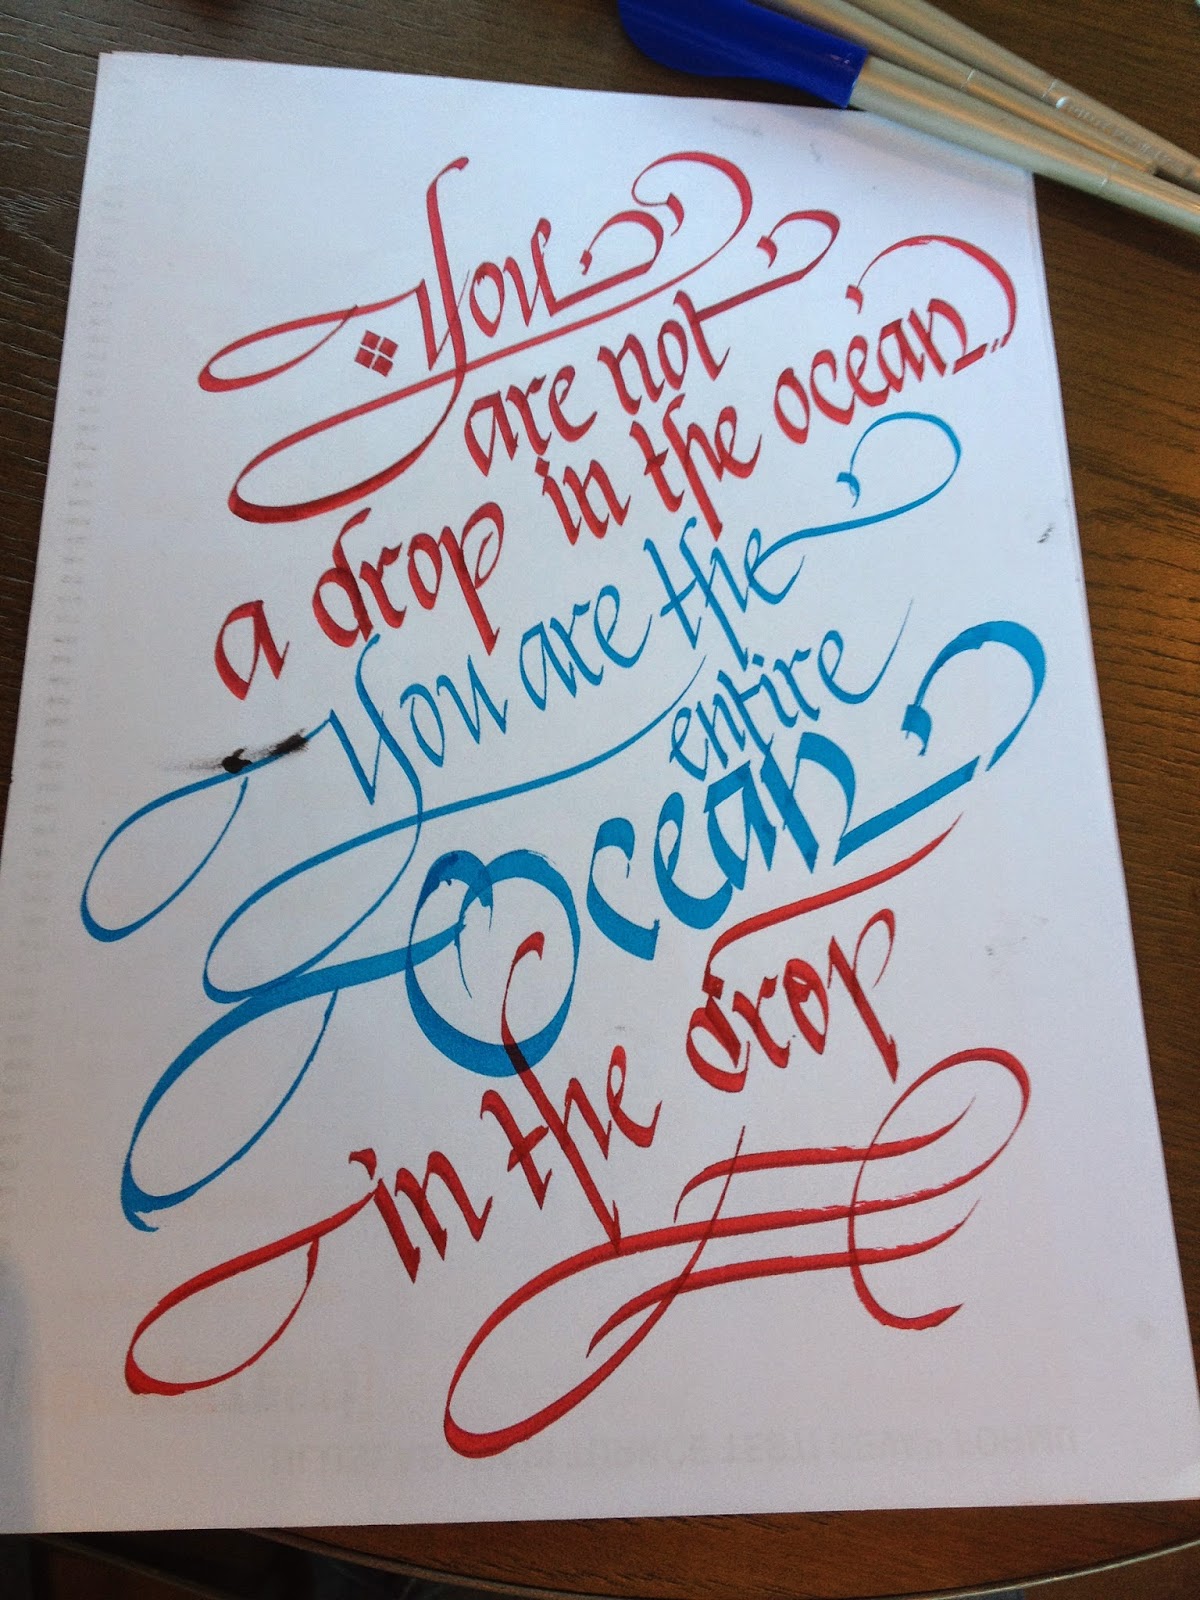 You
are not
a drop in the ocean..
You are the
entire
Ocean
in the drop